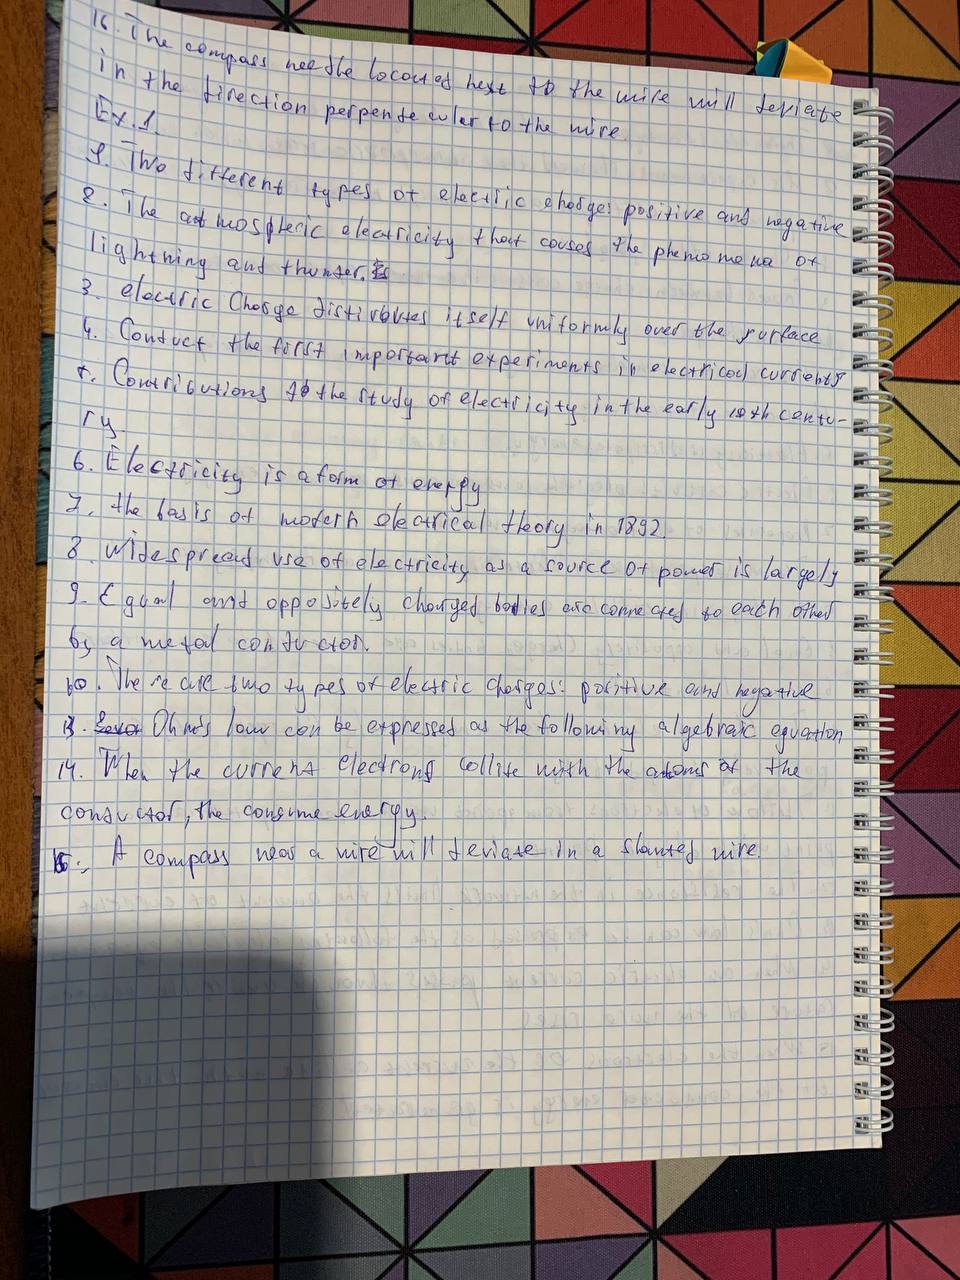 16. The compass needle located next to the wire will deviate
in the direction perpendecular to the wire.
Ex.1.
1. Two different types of electric charge: positive and negative
2. The atmospheric electricity that causes the phenomena of
lightning and thunder.
3. electric Charge distirbutes itself uniformly over the surface
4. Conduct the first important experiments in electrical currents
5. Contributions to the study of electricity in the early 19th centu-
ry.
6. Electricity is a form of energy
7. the basis of modern electrical theory in 1892.
8. widespread use of electricity as a source of power is largely
9. Equal and oppositely charged bodies are connected to each other
by a metal conductor.
10. There are two types of electric charges: positive and negative
13. Ohm's law can be expressed as the following algebraic equation
14. When the current electrons collide with the atoms of the
conductor, the consume energy.
15. A compass near a wire will deviate in a slanted wire